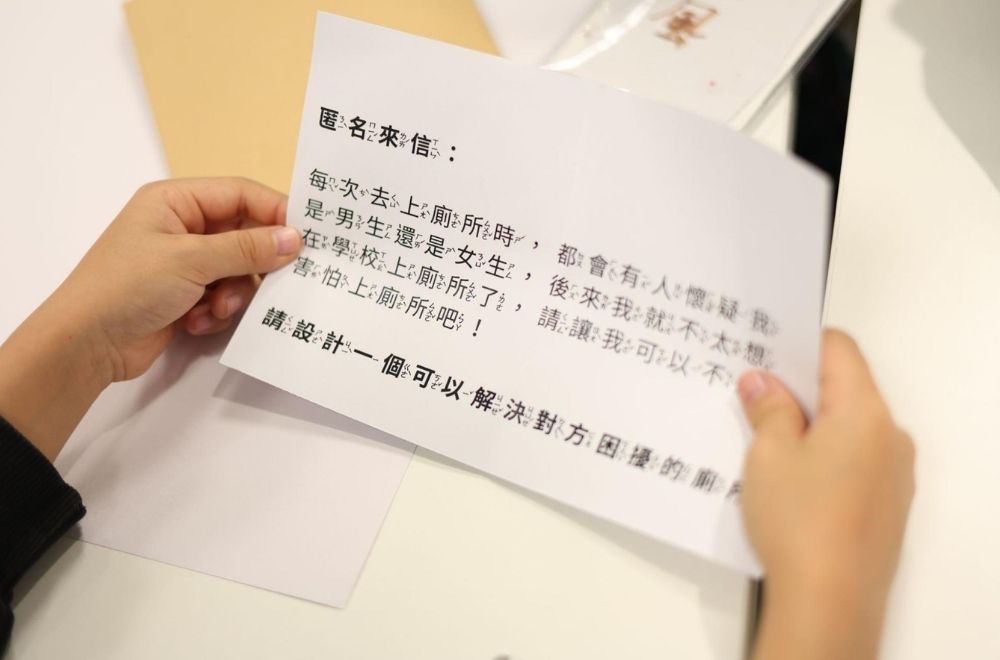 匿名來信：
每次去上廁所時，都會有人懷疑我
是男生還是女生，後來我就不太想
在學校上廁所了，請讓我可以不
害怕上廁所吧！
請設計一個可以解決對方困擾的廁